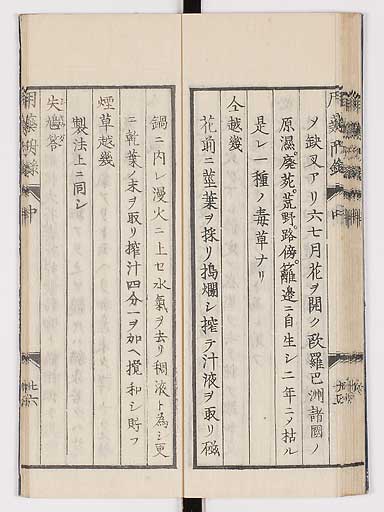 ヲ缺叉アリ六七月花ヲ開ク歐羅巴洲諸國ノ
原濕廢苑荒野路傍籬邊ニ自生シ二年ニノ枯ル
是レ一種ノ毒草ナリ
仝越幾
花萠ニ莖葉ヲ採リ搗爛シ搾テ汁液ヲ取リ磁
鍋ニ內レ漫火ニ上セ水氣ヲ去リ稠液ト為シ更
ニ乾葉ノ末ヲ取リ搾汁四分一ヲ加ヘ攪和シ貯フ
煙草越幾
製法上ニ同シ
失鳩答
中